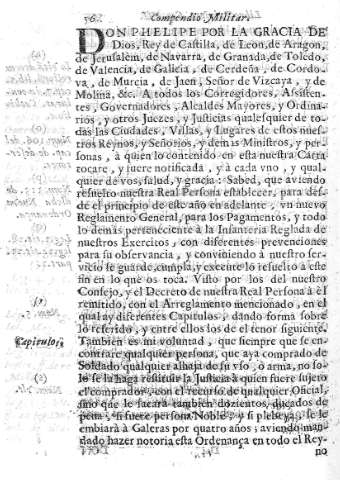 56 Compendio Militar.
DON PHELIPE POR LA GRACIA DE
Dios, Rey de Castilla, de Leon, de Aragon,
de Jerusalèm, de Navarra, de Granada, de Toledo,
de Valencia, de Galicia, de Cerdeña, de Cordo-
va, de Murcia, de Jaen, Señor de Vizcaya, y de
Molina, &c. A todos los Corregidores, Assisten-
tes, Governadores, Alcaldes Mayores, y Ordina-
rios, y otros Juezes, y Justicias qualesquier de to-
das las Ciudades, Villas, y Lugares de estos nues-
tros Reynos, y Señorios, y demàs Ministros, y per-
sonas, à quien lo contenido en esta nuestra Carta
tocare, y fuere notificada, y à cada vno, y qual-
quier de vos, salud, y gracia: Sabed, que aviendo
resuelto nuestra Real Persona establecer, para des-
de el principio de este año en adelante, vn nuevo
Reglamento General, para los Pagamentos, y todo
lo demàs perteneciente à la Infanteria Reglada de
nuestros Exercitos, con diferentes prevenciones
para su observancia, y conviniendo à nuestro ser-
vicio se guarde, cumpla, y execute lo resuelto à este
fin en lo que os toca. Visto por los del nuestro
Consejo, y el Decreto de nuestra Real Persona à èl
remitido, con el Arreglamento mencionado, en el
qual ay diferentes Capitulos, dando forma sobre
lo referido, y entre ellos los de el tenor siguiente.
Capitulos,
Tambien es mi voluntad, que siempre que se en-
contrare qualquier persona, que aya comprado de
Soldado qualquier alhaja de su vso, ò arma, no so-
lo se la haga restituir la Justicia à quien fuere sujeto
el comprador, con el recurso de qualquier Oficial,
sino que le sacarà tambien dozientos ducados de
pena, si fuere persona Noble; y si plebeya, se le
embiarà à Galeras por quatro años; aviendo man-
dado hazer notoria esta Ordenança en todo el Rey-
no